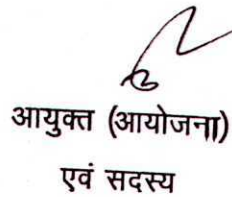 आयुक्त (आयोजना)
एवं सदस्य